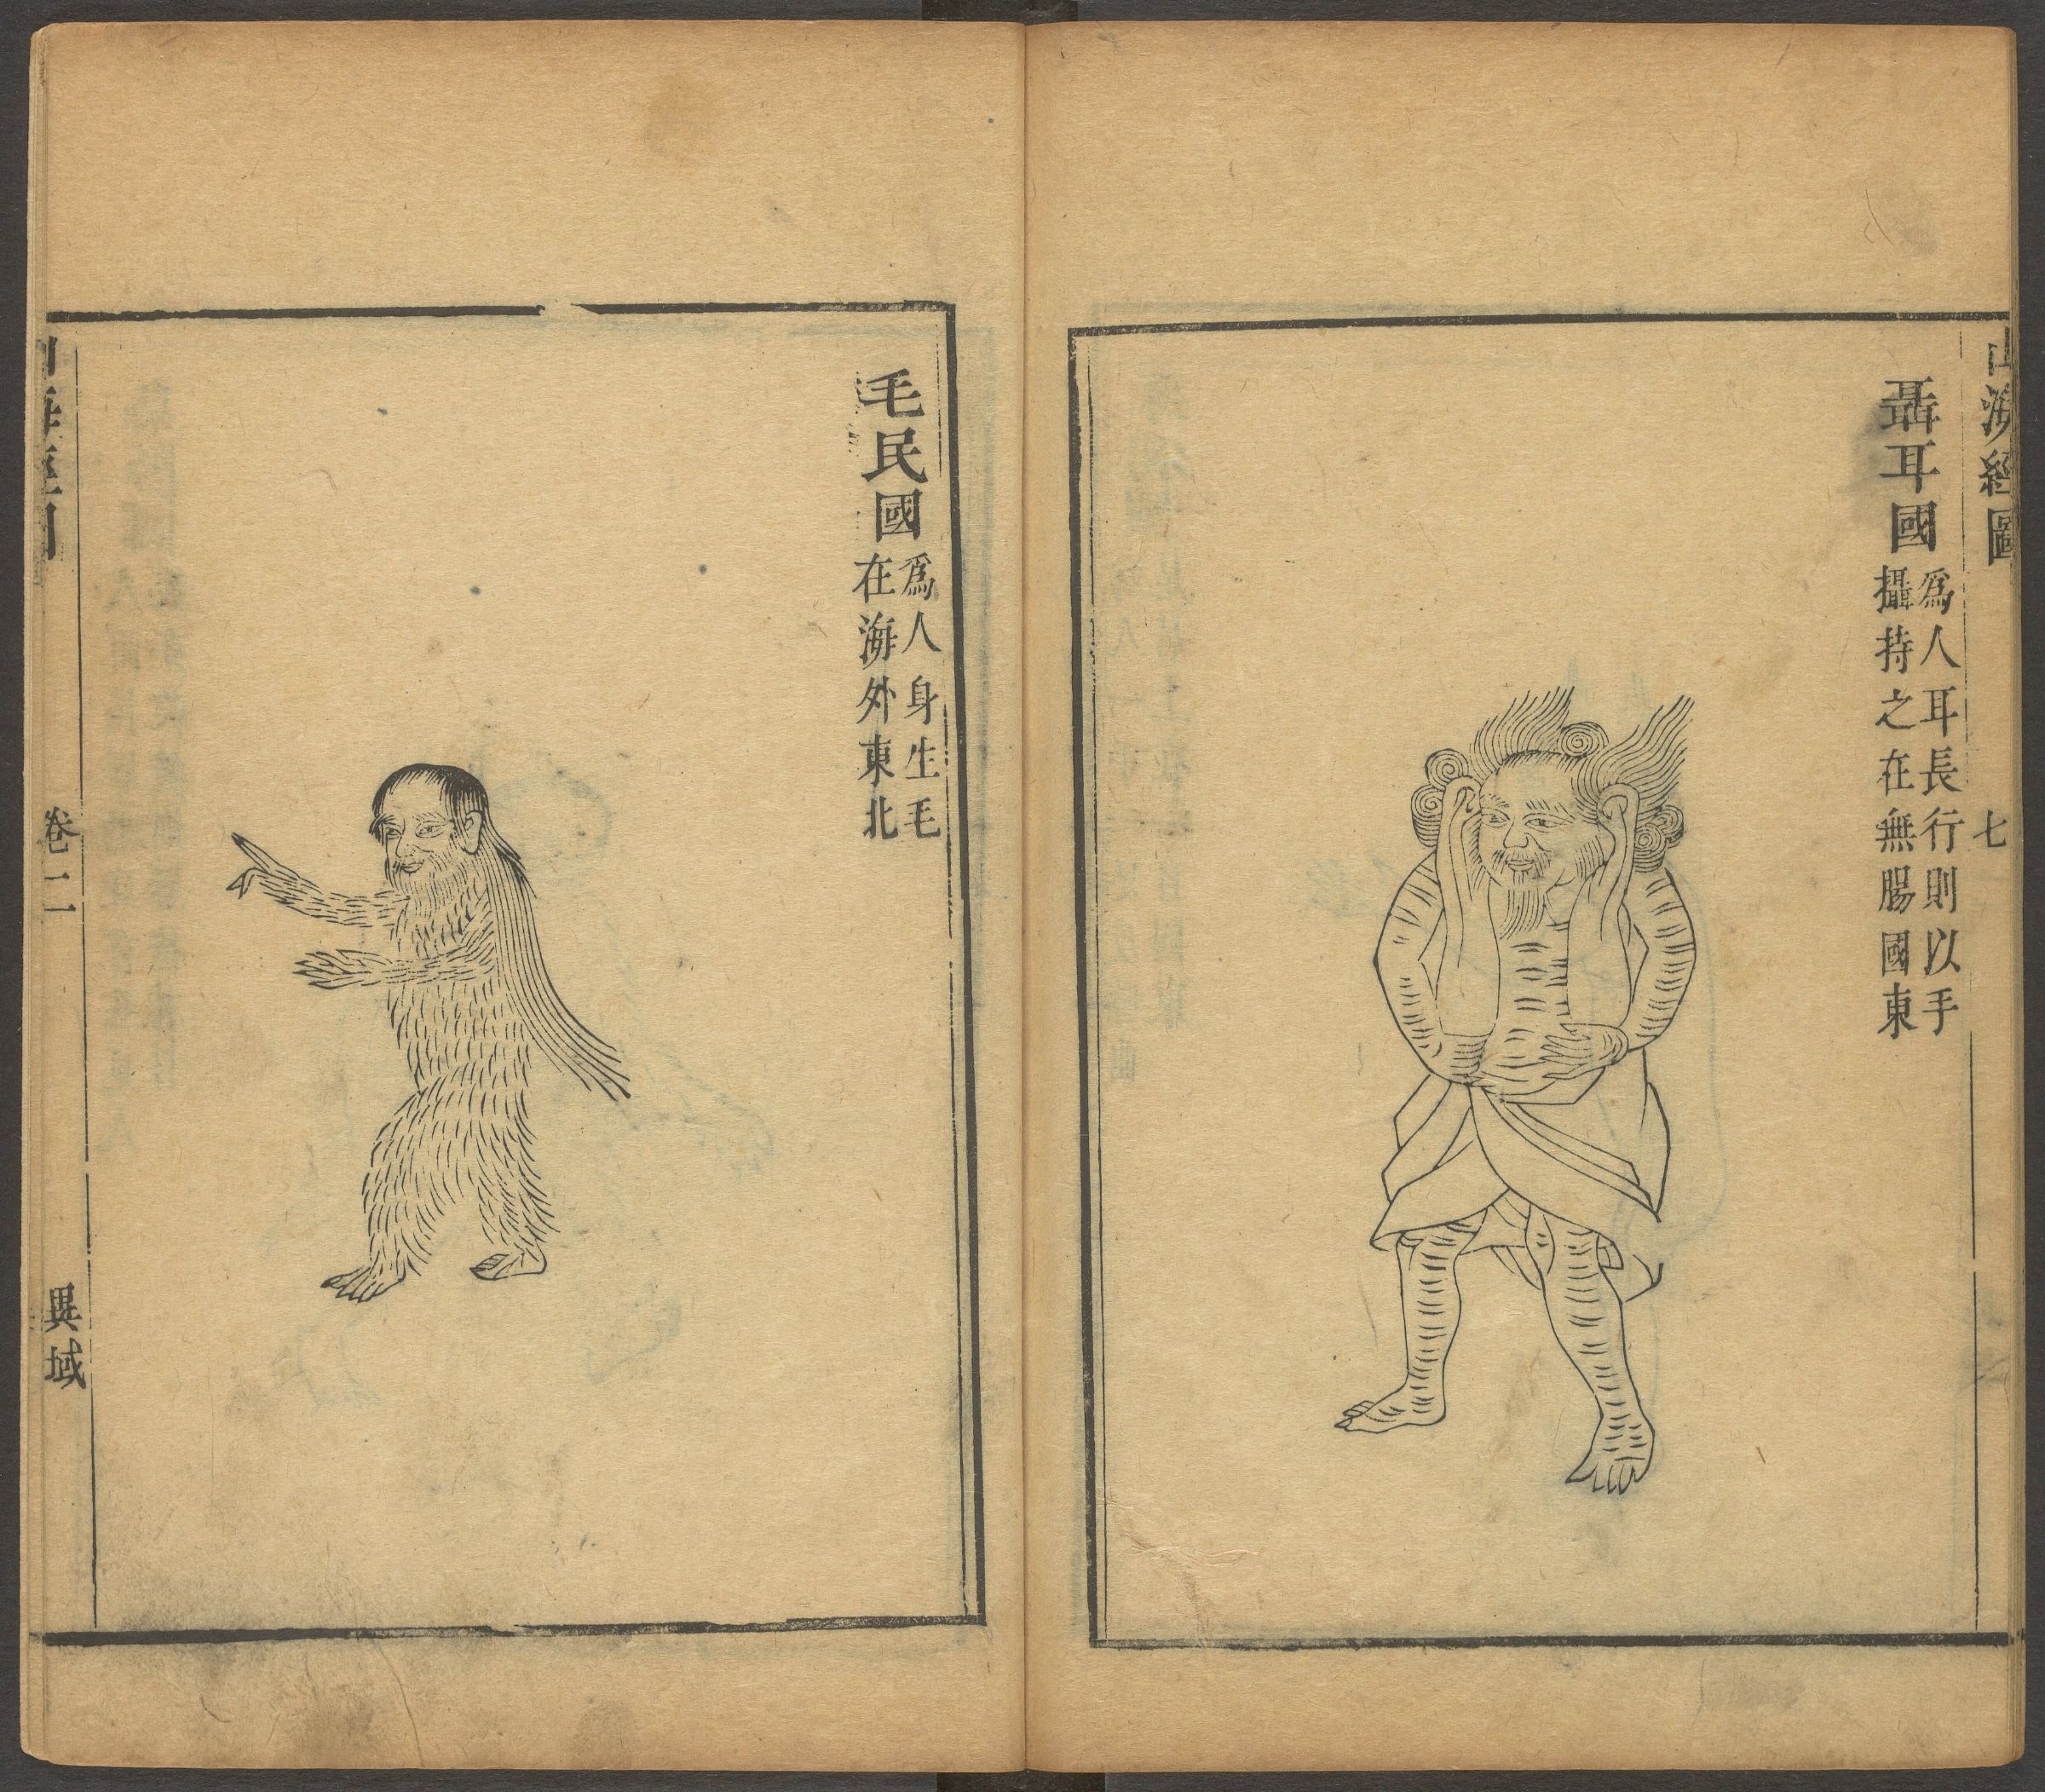 山海經圖
七
聶耳國
爲人耳長行則以手
攝持之在無腸國東
毛民國
爲人身生毛
在海外東北
卷二
異域